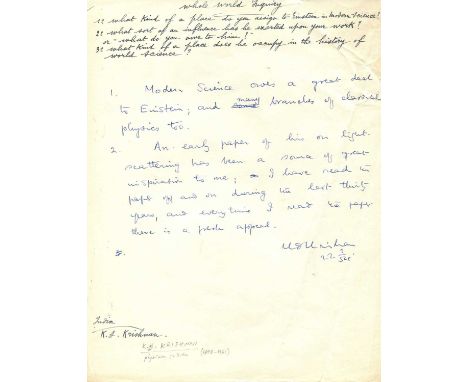 whole world Inquiry
1? what kind of a place - do you assign to Einstein in modern science?
2? what sort of an influence has he exerted upon your work?
or - what do you owe to him?
3? what kind of a place does he occupy in the history of
world science?
1. Modern Science owes a great deal
to Einstein; and many branches of classical
physics too.
2. An early paper of his on light-
scattering has been a source of great
inspiration to me; I have read the
paper off and on during the last thirty
years, and everytime I read the paper
there is a fresh appeal.
3.
KSKrishnan
India
K. S. Krishnan
K.S. KRISHNAN
(1898-1961)